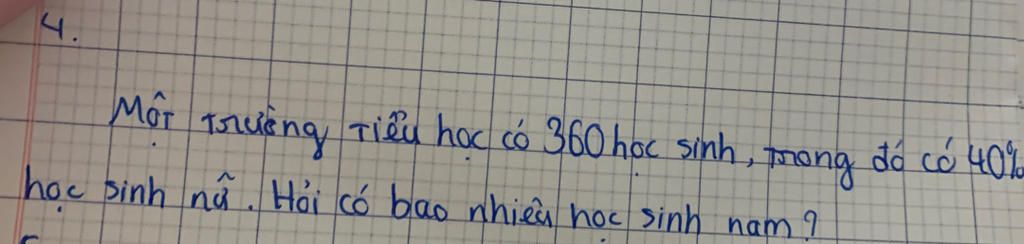 4.
Một trường Tiểu học có 360 học sinh, trong đó có 40%
học sinh nữ. Hỏi có bao nhiêu học sinh nam?